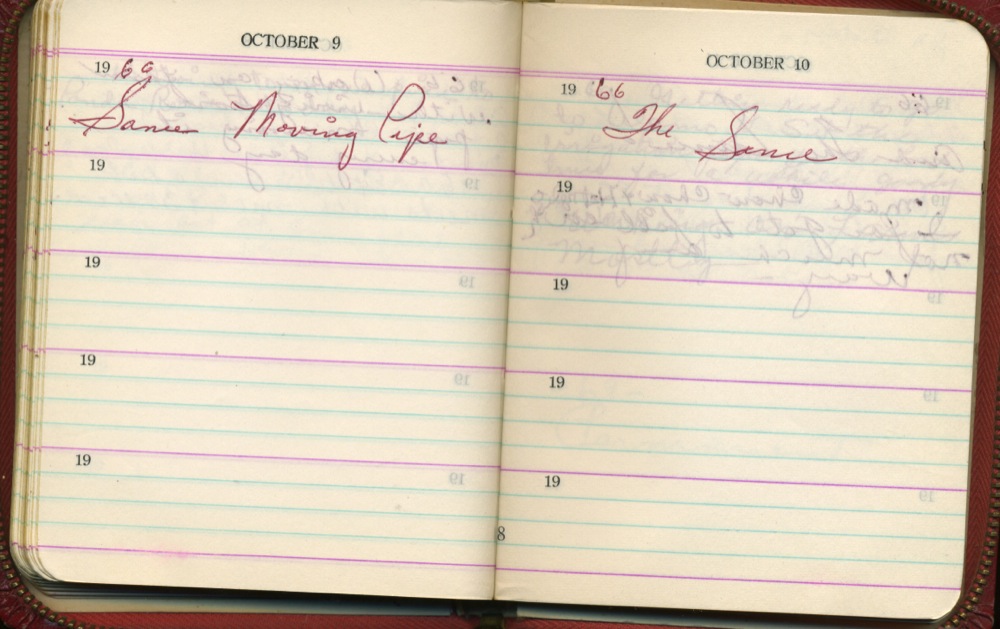 OCTOBER 9
19 66
Same Moving Pipe
19
19
19
19
8
OCTOBER 10
19 66
The Same
19
19
19
19